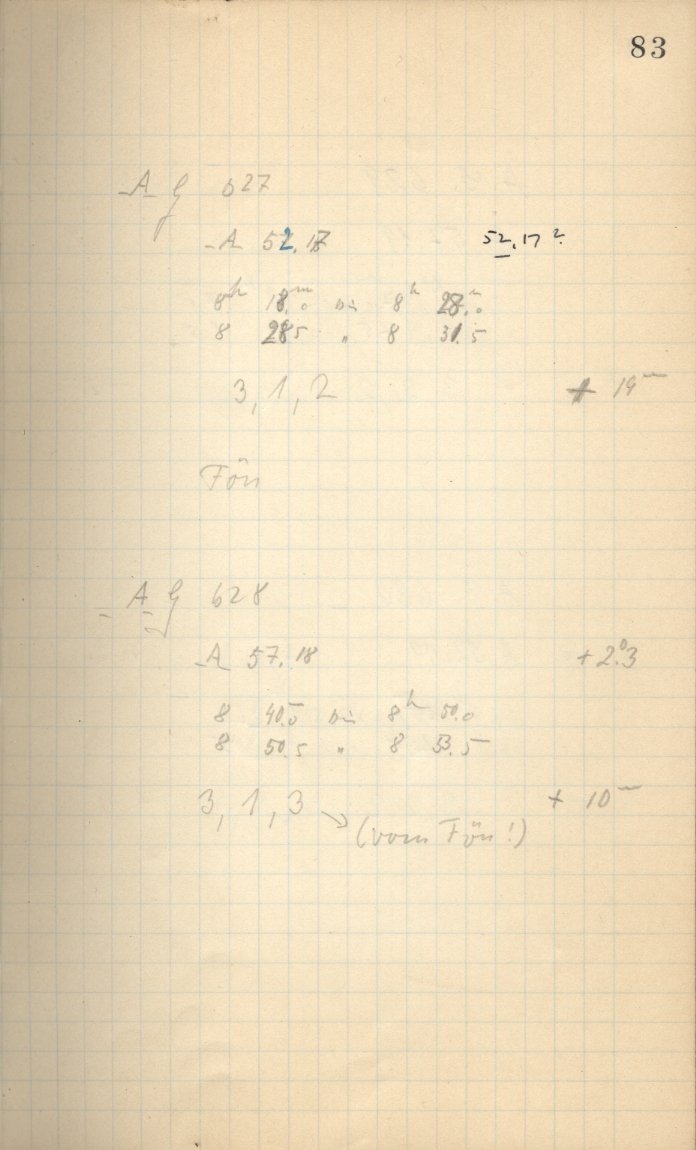 83
A G 627
A 52.17 52.17?
8h 18m.0 bis 8h 28m.0
8 28.5 " 8 31.5
3, 1, 2 + 19m
Fön
A G 628
A 57.18 +2°.3
8 40.0 bis 8h 50.0
8 50.5 " 8 53.5
3, 1, 3 + 10m
→ (vom Fön!)